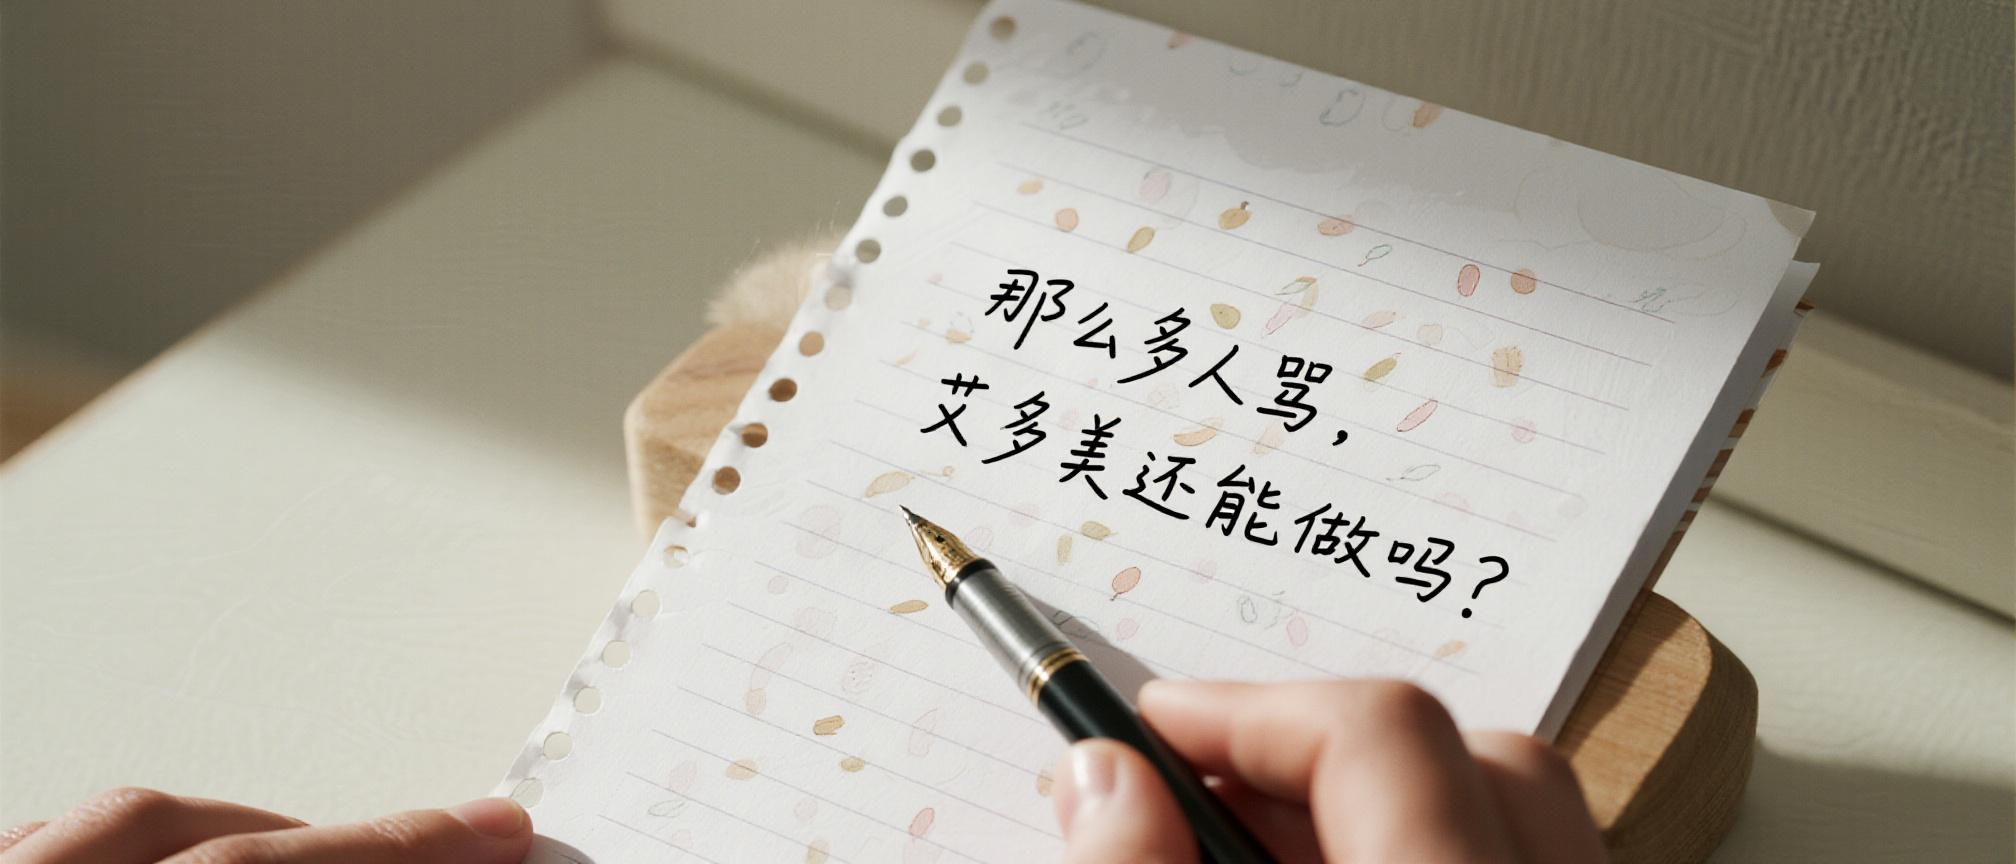 那么多人骂，
艾多美还能做吗？